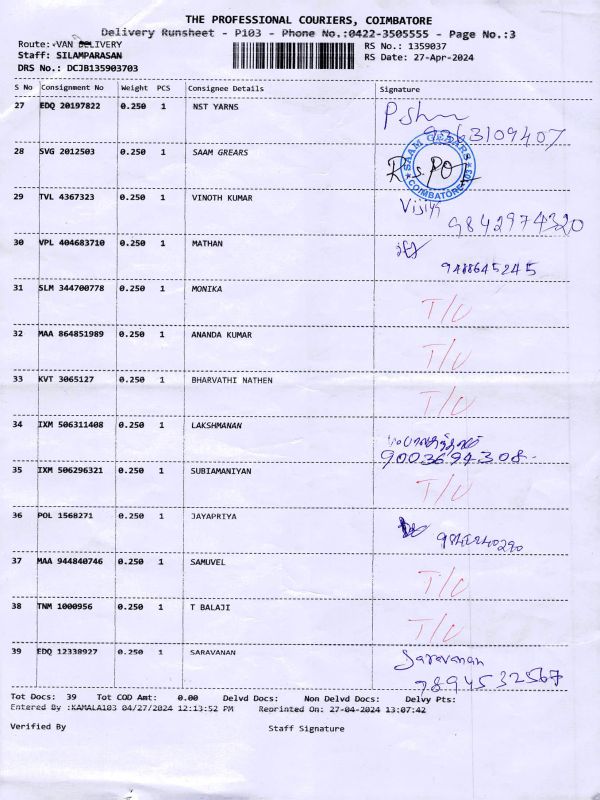 THE PROFESSIONAL COURIERS, COIMBATORE
Delivery Runsheet - P103 - Phone No.:0422-3505555 - Page No.:3
Route: VAN DELIVERY
RS No.: 1359037
Staff: SILAMPARASAN
RS Date: 27-Apr-2024
DRS No.: DCJB135903703
S No Consignment No Weight PCS Consignee Details Signature
27 EDQ 20197822 0.250 1 NST YARNS
9363109407
28 SVG 2012503 0.250 1 SAAM GREARS
SAAM GREARS COIMBATORE
29 TVL 4367323 0.250 1 VINOTH KUMAR
9842974320
30 VPL 404683710 0.250 1 MATHAN
31 SLM 344700778 0.250 1 MONIKA T/U
32 MAA 864851989 0.250 1 ANANDA KUMAR T/U
33 KVT 3065127 0.250 1 BHARVATHI NATHEN T/U
34 IXM 506311408 0.250 1 LAKSHMANAN
9003694308-
35 IXM 506296321 0.250 1 SUBIAMANIYAN T/U
36 POL 1568271 0.250 1 JAYAPRIYA
37 MAA 944840746 0.250 1 SAMUVEL T/U
38 TNM 1000956 0.250 1 T BALAJI T/U
39 EDQ 12338927 0.250 1 SARAVANAN Saravanan
7894532567
Tot Docs: 39 Tot COD Amt: 0.00 Delvd Docs: Non Delvd Docs: Delvy Pts:
Entered By :KAMALA103 04/27/2024 12:13:52 PM Reprinted On: 27-04-2024 13:07:42
Verified By Staff Signature